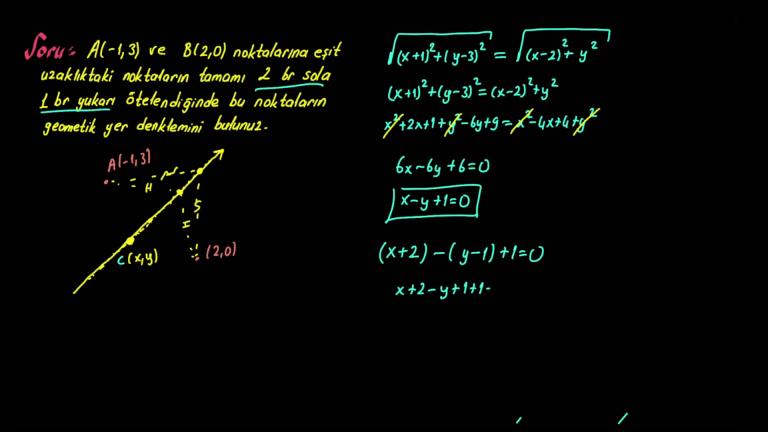 Soru:- A(-1,3) ve B(2,0) noktalarına eşit
uzaklıktaki noktaların tamamı 2 br sola
1 br yukarı ötelendiğinde bu noktaların
geometik yer denklemini bulunuz.
A(-1,3)
C(x,y)
(2,0)
√(x+1)²+(y-3)² = √(x-2)²+y²
(x+1)²+(y-3)²=(x-2)²+y²
x²+2x+1+y²-6y+9=x²-4x+4+y²
6x-6y+6=0
x-y+1=0
(x+2)-(y-1)+1=0
x+2-y+1+1-